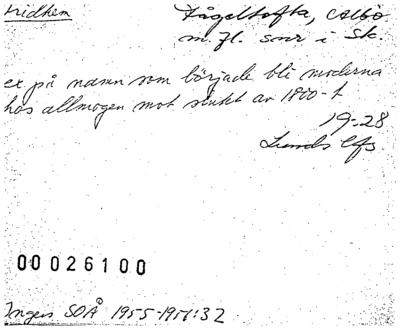 Fridhem
Fågeltofta, Albo
m.fl. snr i Sk.
ex på namn som började bli moderna
hos allmogen mot slutet av 1800-t
19-28
Lunds lfs.
00 026100
Ingers SOÅ 1955-1956:32